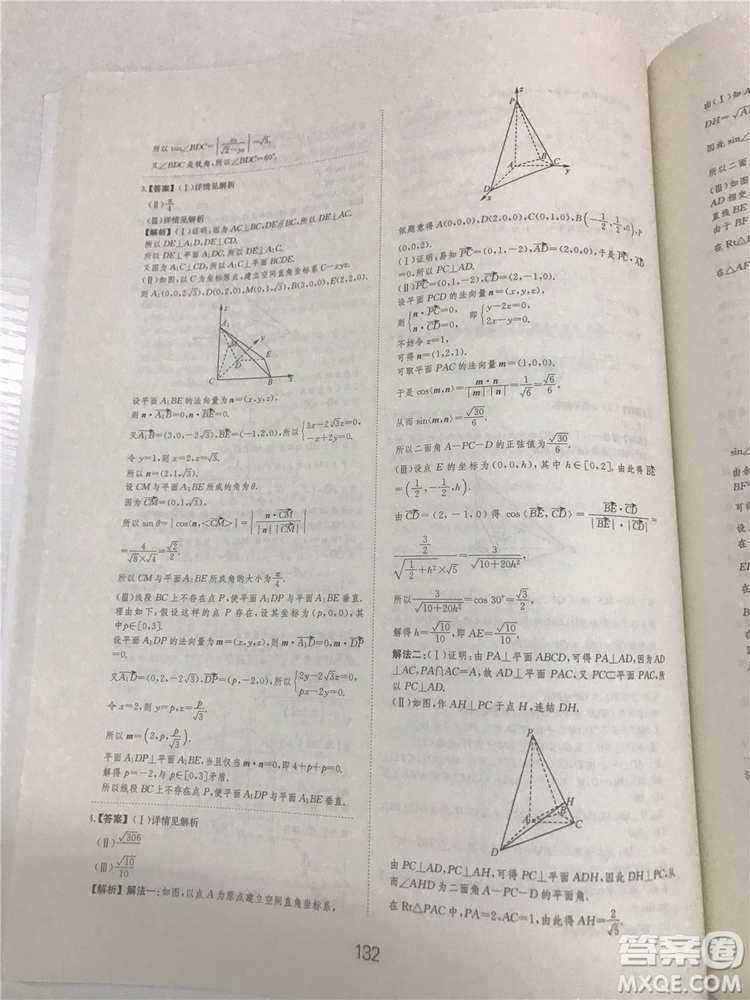 所以 tan∠BDC=|√3y/(√2-y)|=√3,
又∠BDC是锐角,所以∠BDC=60°.
3.【答案】(Ⅰ)详情见解析
(Ⅱ)π/4
(Ⅲ)详情见解析
【解析】(Ⅰ)证明:因为AC⊥BC,DE∥BC,所以DE⊥AC.
所以DE⊥A₁D,DE⊥CD.
所以DE⊥平面A₁DC.所以DE⊥A₁C.
又因为A₁C⊥CD,所以A₁C⊥平面BCDE.
(Ⅱ)如图,以C为坐标原点,建立空间直角坐标系C—xyz.
则A₁(0,0,2√3),D(0,2,0),M(0,1,√3),B(3,0,0),E(2,2,0)
z
A₁
M
y
D
E
C
B
x
设平面A₁BE的法向量为n=(x,y,z),
则n·A₁B=0,n·BE=0.
又A₁B=(3,0,-2√3),BE=(-1,2,0),所以{3x-2√3z=0,
-x+2y=0.
令y=1,则x=2,z=√3,
所以n=(2,1,√3).
设CM与平面A₁BE所成的角为θ.
因为CM=(0,1,√3),
所以sinθ=|cos⟨n,<CM⟩>|=|n·CM/|n||CM||
=4/(√8×√4)=√2/2.
所以CM与平面A₁BE所成角的大小为π/4.
(Ⅲ)线段BC上不存在点P,使平面A₁DP与平面A₁BE垂直.
理由如下:假设这样的点P存在,设其坐标为(p,0,0),其
中p∈[0,3].
设平面A₁DP的法向量为m=(x,y,z),则m·A₁D=0,m·DP
=0.
又A₁D=(0,2,-2√3),DP=(p,-2,0),所以{2y-2√3z=0,
px-2y=0.
令x=2,则y=p,z=p/√3.
所以m=(2,p,p/√3).
平面A₁DP⊥平面A₁BE,当且仅当m·n=0,即4+p+p=0.
解得p=-2,与p∈[0,3]矛盾.
所以线段BC上不存在点P,使平面A₁DP与平面A₁BE垂直.
4.【答案】(Ⅰ)详情见解析
(Ⅱ)√306
(Ⅲ)√10/10
【解析】解法一:如图,以点A为原点建立空间直角坐标系,
z
P
A
B
C
y
D
x
依题意得A(0,0,0),D(2,0,0),C(0,1,0),B(-1/2,1/2,0),
P(0,0,2).
(Ⅰ)证明:易知PC=(0,1,-2),AD=(2,0,0),于是PC·AD
=0,所以PC⊥AD.
(Ⅱ)PC=(0,1,-2),CD=(2,-1,0)
设平面PCD的法向量n=(x,y,z),
则{n·PC=0,
n·CD=0,即{y-2z=0,
2x-y=0.
不妨令z=1,
可得n=(1,2,1).
可取平面PAC的法向量m=(1,0,0).
于是cos⟨m,n⟩=m·n/|m||n|=1/√6=√6/6,
从而sin⟨m,n⟩=√30/6.
所以二面角A-PC-D的正弦值为√30/6.
(Ⅲ)设点E的坐标为(0,0,h),其中h∈[0,2].由此得BE
=(1/2,-1/2,h).
由CD=(2,-1,0)得cos⟨BE,CD⟩=BE·CD/|BE|·|CD|=
(3/2)/(√(1/2+h²)×√5)=3/√(10+20h²),
所以3/√(10+20h²)=cos30°=√3/2,
解得h=√10/10,即AE=√10/10.
解法二:(Ⅰ)证明:由PA⊥平面ABCD,可得PA⊥AD,又由
AD⊥AC,PA∩AC=A,故AD⊥平面PAC,又PC⊂平面PAC,所
以PC⊥AD.
(Ⅱ)如图,作AH⊥PC于点H,连结DH.
P
H
A
B
C
D
由PC⊥AD,PC⊥AH,可得PC⊥平面ADH,因此DH⊥PC,从
而∠AHD为二面角A-PC-D的平面角.
在Rt△PAC中,PA=2,AC=1,由此得AH=2/√5.
132
由(Ⅰ)知A
DH=√A
因此sin∠
所以二面
(Ⅲ)如图
AD相交
直线BE
由于BF
在△AF
sin
BF²
在
答案圈
MXQE.COM